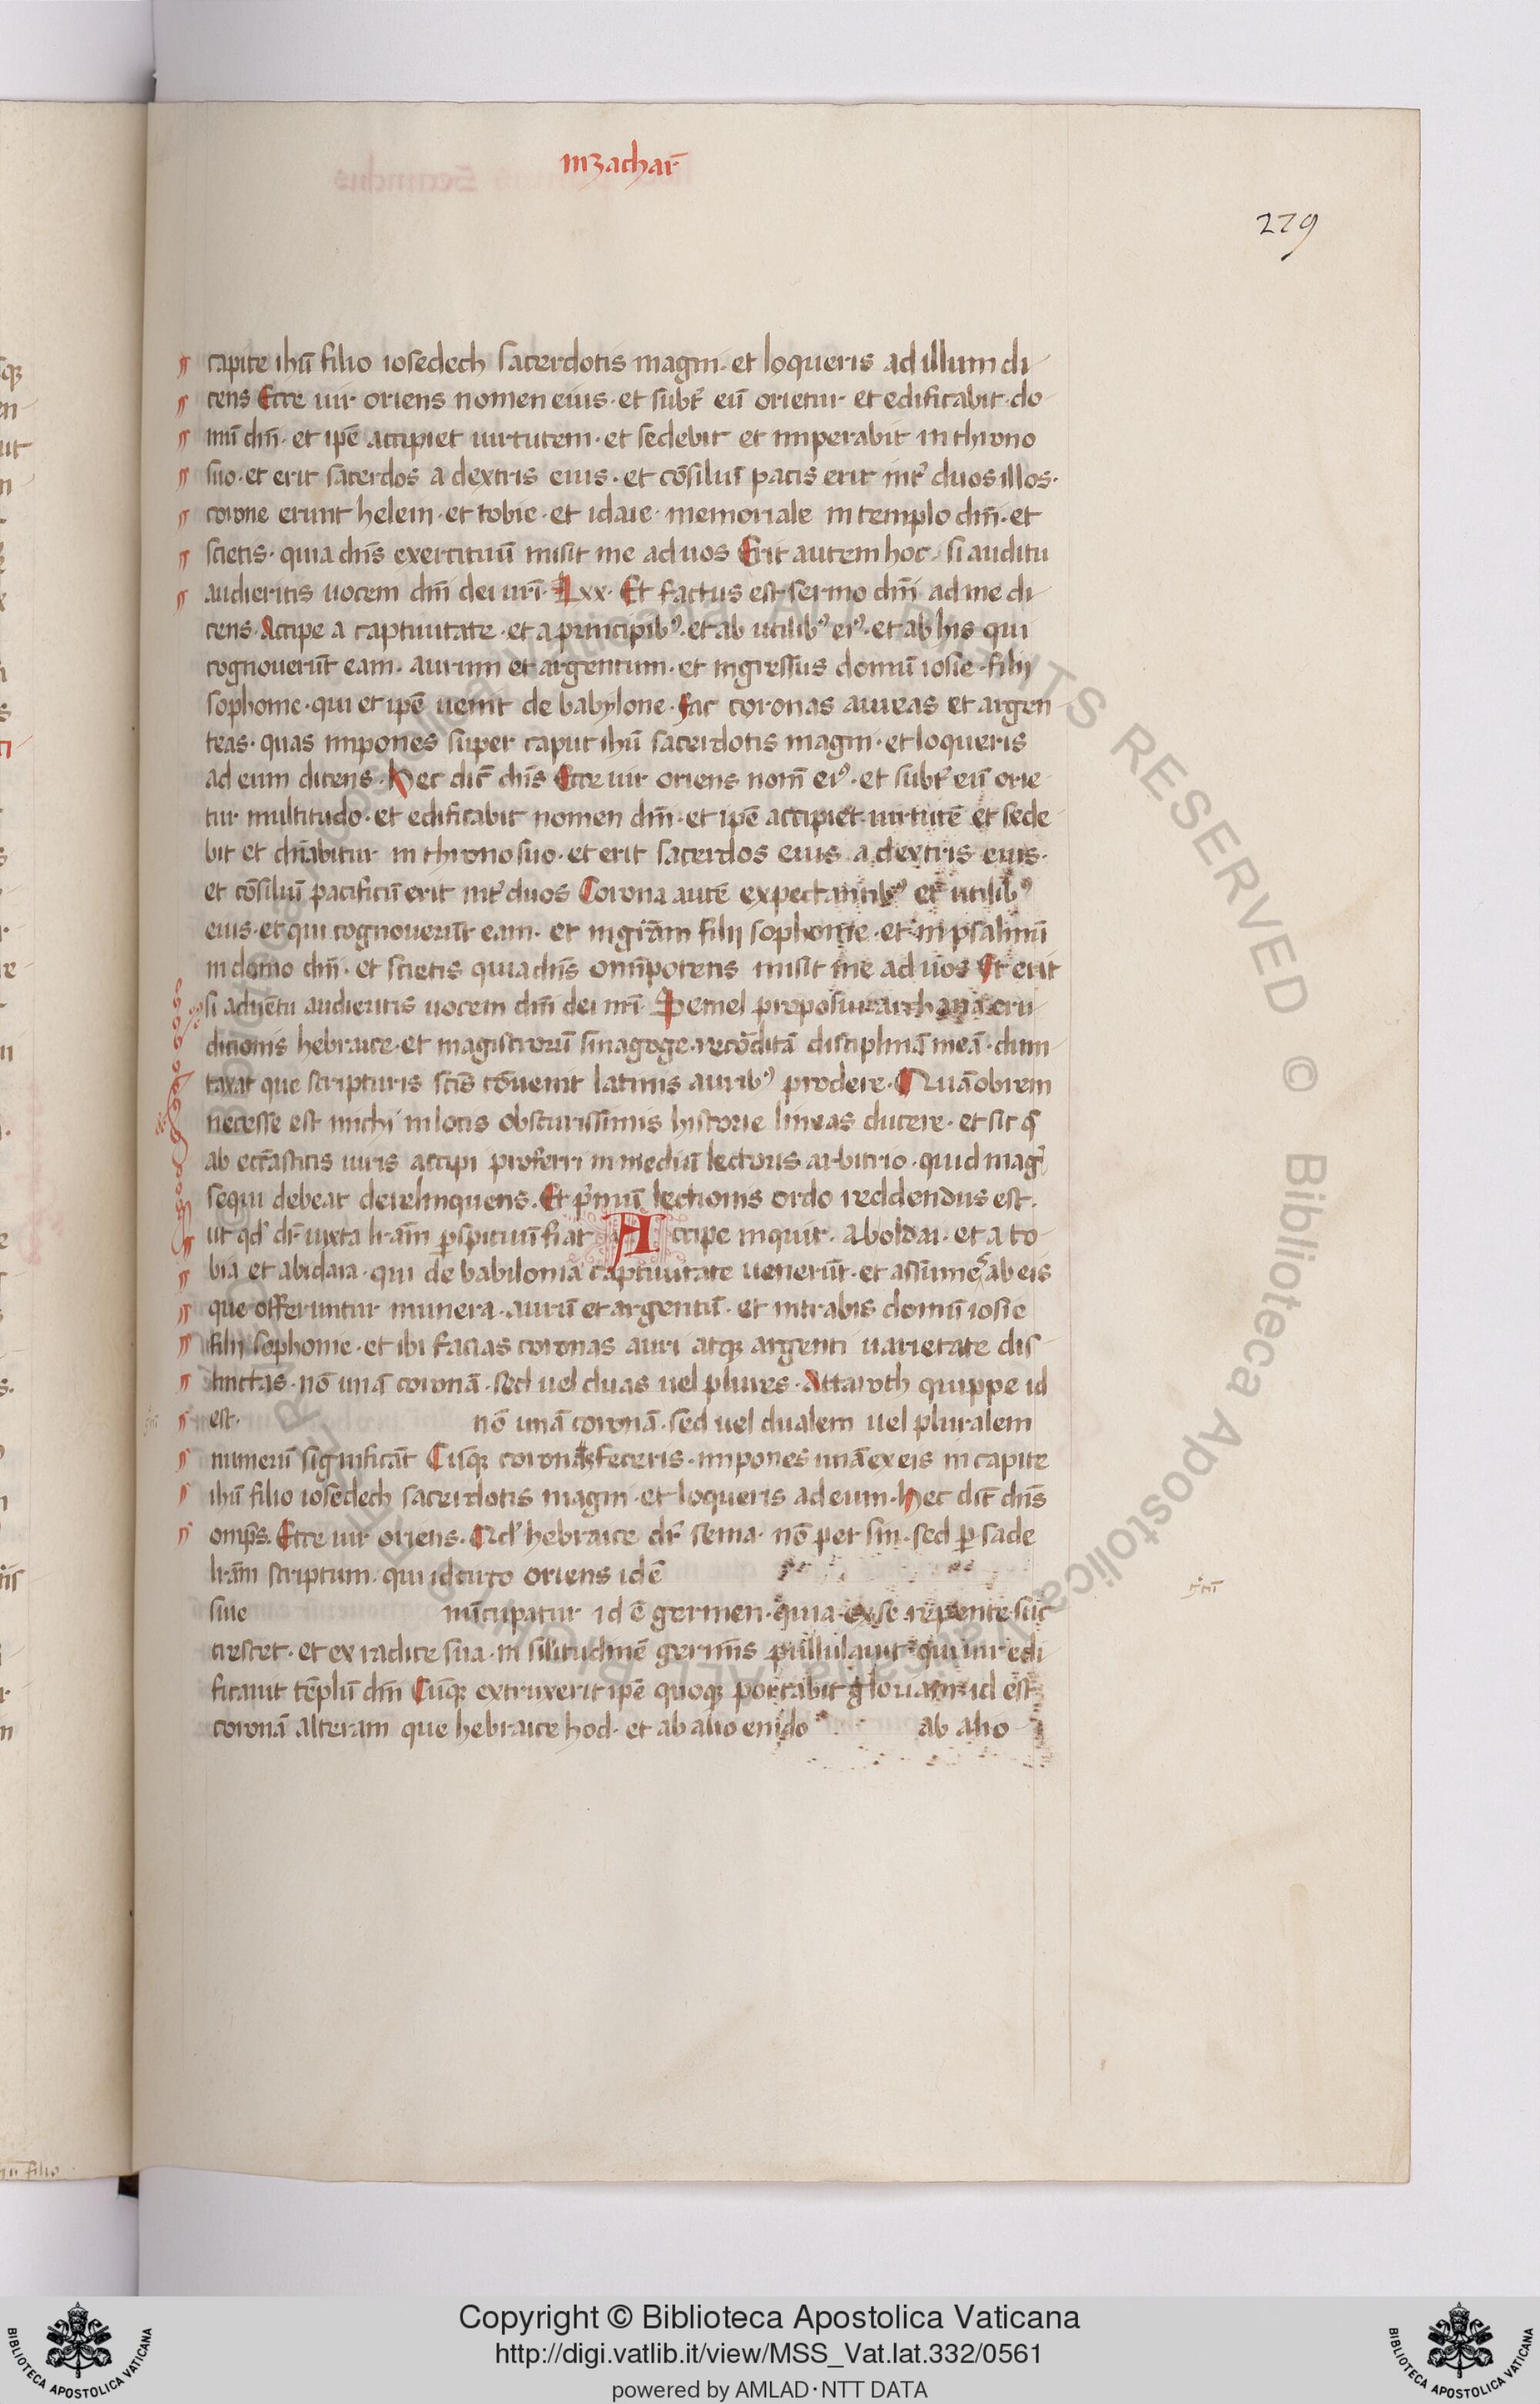 in zachar̄
279
capite ihū filio iosedech sacerdotis magni · et loqueris ad illum di
cens Ecce uir oriens nomen eius · et subt̄ eū orietur et edificabit · do
mū dn̄i · et ipē accipiet uirtutem · et sedebit et imperabit in throno
suo · et erit sacerdos a dextris eius · et cōsiliuī pacis erit int̄ duos illos ·
corone erunt helem · et tobie · et idaie · memoriale in templo dn̄i · et
scietis · quia dn̄s exercituū misit me ad uos Erit autem hoc · si auditu
audieritis uocem dn̄i dei urī · Lxx · Et factus est sermo dn̄i ad me di
cens · Accipe a captiuitate · et a principib⁹ · et ab utilib⁹ ei⁹ · et ab his qui
cognouerūt eam · aurum et argentum · et ingressus domū iosie · filii
sophonie · qui et ipē uenit de babylone · fac coronas aureas et argen
teas · quas impones super caput ihū sacerdotis magni · et loqueris
ad eum dicens · Hec dic̄ dn̄s Ecce uir oriens nom̄ ei⁹ · et subt̄ eū orie
tur multitudo · et edificabit nomen dn̄i · et ipē accipiet uirtutē et sede
bit et dn̄abitur in throno suo · et erit sacerdos eius a dextris eius ·
et cōsiliuī pacificū erit int̄ duos Corona autē expectantib⁹ et utilib⁹
eius · et qui cognouerūt eam · et in gr̄am filii sophonie · et in psalmū
in domo dn̄i · et scietis quia dn̄s omīpotens misit me ad uos Et erit
si adiientu audieritis uocem dn̄i dei nrī · Semel proposui archana eru
ditionis hebraice · et magistrorū sinagoge · recōditā disciplinā meā · dum
taxat que scripturis scīs cōuenit latinis aurib⁹ prodere · Quāobrem
necesse est michi in locis obscurissimis historie lineas ducere · et sic q̄
ab eccl̄asticis uiris accipi proferri in mediū lectoris arbitrio · quid maḡ
sequi debeat derelinquens. Et p̄mū lectionis ordo reddendus est.
ut qd̄ dr̄ iuxta lr̄am p̄spicuū fiat Accipe inquit · ab oldai · et a to
bia et ab idaia · qui de babilonia captiuitate uenerūt · et assūmes ab eis
que offeruntur munera · aurū et argentū · et intrabis domū iosie
filii sophonie · et ibi facias coronas auri atqȝ argenti uarietate dis
tinctas · nō unā coronā · sed uel duas uel plures · Attaroth quippe id
est · nō unā coronā · sed uel dualem uel pluralem
numerū significāt Cūqȝ coronas feceris · impones unā ex eis in capite
ihū filio iosedech sacerdotis magni · et loqueris ad eum · Hec dic̄ dn̄s
omp̄s. Ecce uir oriens. Qd̄ hebraice dr̄ sema · nō per sin · sed p̄ sade
lr̄am scriptum · qui idcirco oriens id ē
siue nūcupatur id ē germen · quia ex se repente suc
crescet · et ex radice sua · in sil̄itudinē germīs pullulauit · qui uir edi
ficauit tēplū dn̄i Cūqȝ extruxerit ipē quoqȝ portabit gloriam id est
coronā alteram que hebraice hod · et ab alio enido ab alio
Copyright © Biblioteca Apostolica Vaticana
http://digi.vatlib.it/view/MSS_Vat.lat.332/0561
powered by AMLAD·NTT DATA
BIBLIOTECA APOSTOLICA VATICANA
BIBLIOTECA APOSTOLICA VATICANA